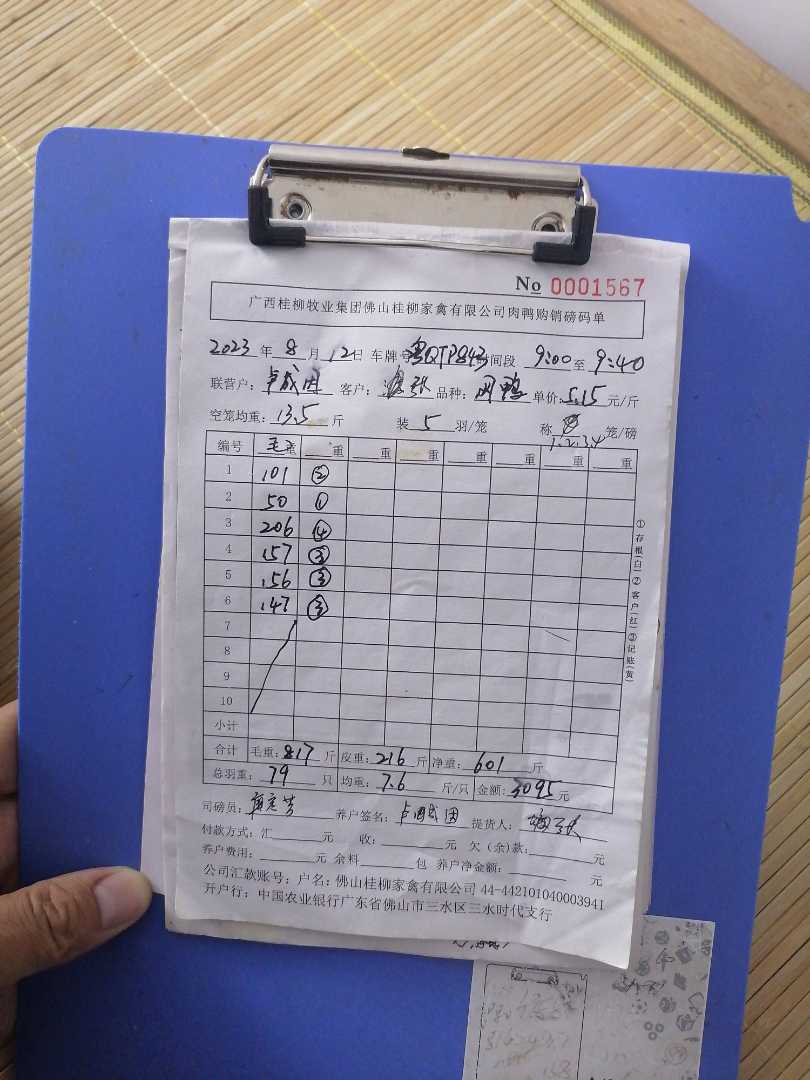 No 0001567
广西桂柳牧业集团佛山桂柳家禽有限公司肉鸭购销磅码单
2023 年 8 月 12 日 车牌号 粤QTP843 时间段 9:00 至 9:40
联营户: 卢成团 客户: 品种: 肉鸭 单价: 5.15 元/斤
空笼均重: 13.5 斤 装 5 羽/笼 称 笼/磅
1.2.3.4
编号 毛重 重 重 重 重 重 重 重
1 101 ②
2 50 ①
3 206 ④
4 157 ③
5 156 ③
6 147 ③
7
8
9
10
小计
合计 毛重: 817 斤 皮重: 216 斤 净重: 601 斤
总羽重: 79 只 均重: 7.6 斤/只 金额: 3095 元
司磅员: 养户签名: 提货人:
付款方式: 汇 元 收: 元 欠(余)款: 元
养户费用: 元 余料 包 养户净金额: 元
公司汇款账号: 户名: 佛山桂柳家禽有限公司 44-442101040003941
开户行: 中国农业银行广东省佛山市三水区三水时代支行
①存根(白)②客户(红)③记账(黄)